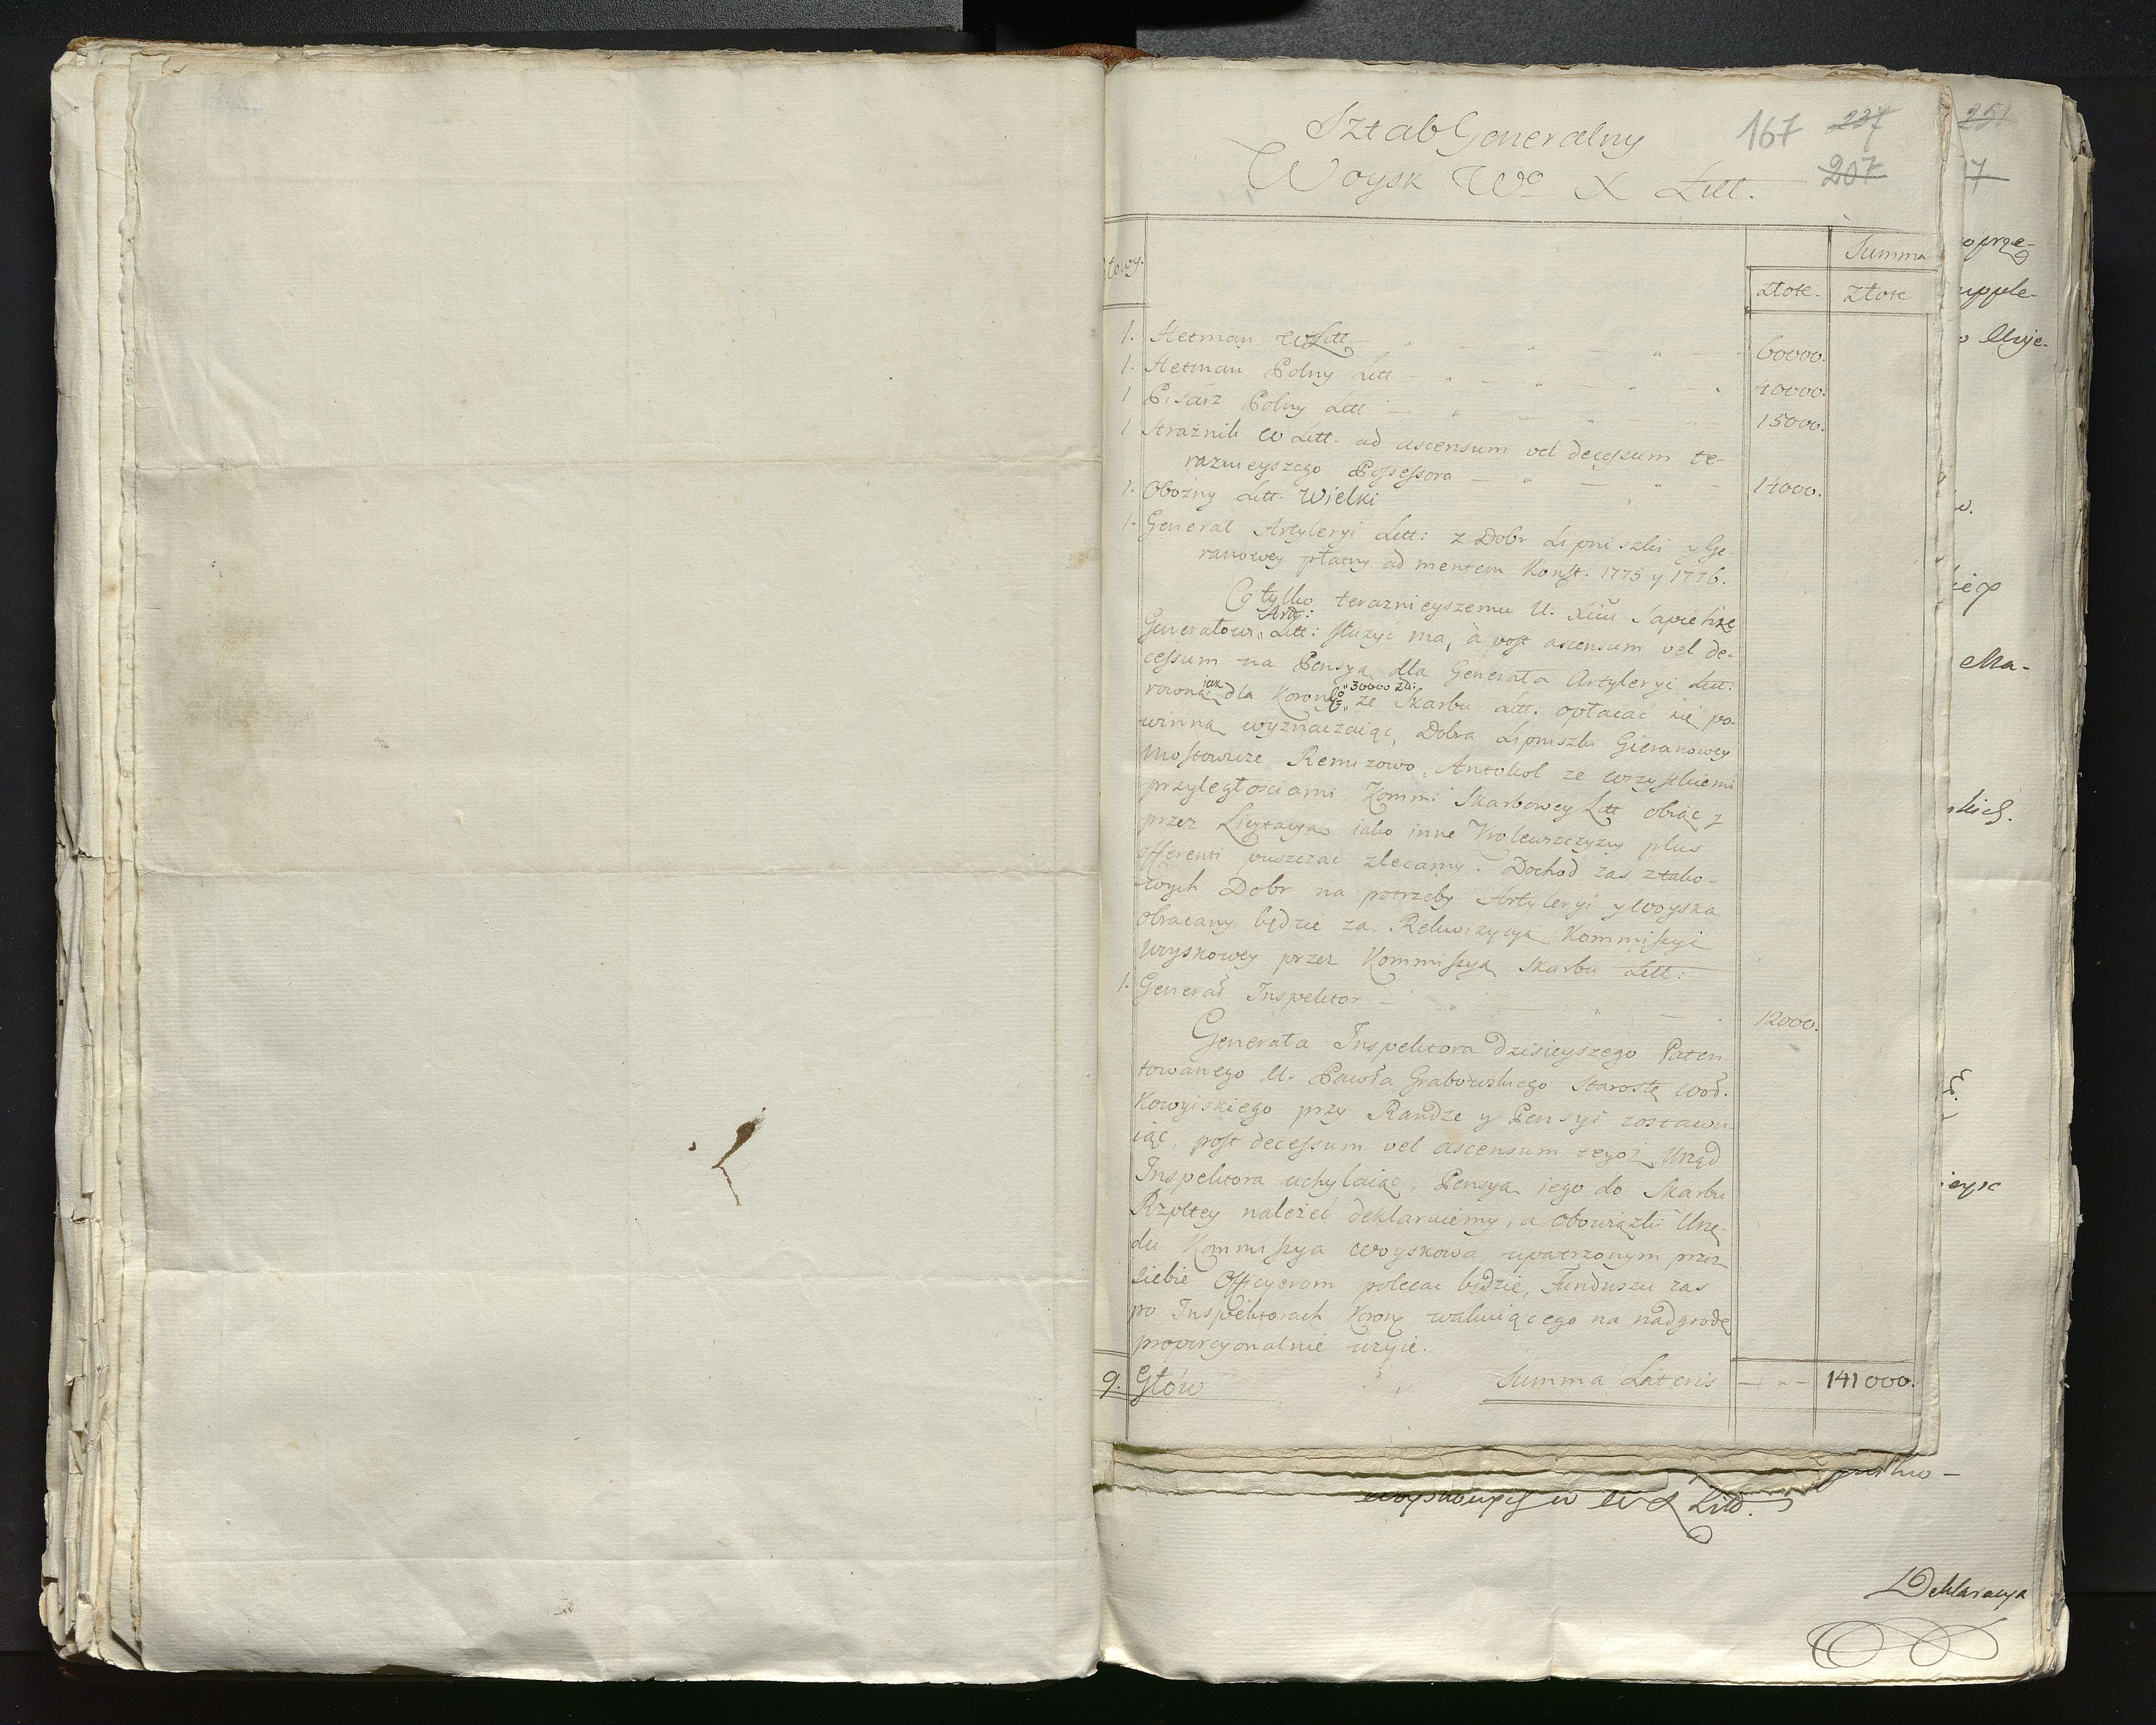 Sztab Generalny
167 237
Woysk Wo X Litt.
207
251
17
towy.
Summa
złote. złote
1. Hetman W Litt 60000.
1. Hetman Polny Litt 40000.
1 Pisarz Polny Litt 15000.
1 Strażnik W Litt. ad ascensum vel decessum te-
raznieyszego Possessora 14000.
1. Obozny Litt: Wielki
1. Generał Artyleryi Litt: z Dobr Lipniszki y Ge-
ranowey płatny ad mentem Konst. 1775 y 1776.
Co tylko teraznieyszemu U. Xciu Sapieże
Arty:
Generałowi Litt: służyć ma, à post ascensum vel de-
cessum na Pensyą dla Generała Artyleryi Litt:
iak 30000 zł:
rowną dla Koronego ze Skarbu Litt: opłacać się po-
winną wyznaczaiąc, Dobra Lipniszki Gieranowey
Mostowicze, Remizowo, Antokol ze wszystkiemi
przyległosciami Kommi Skarbowey Litt obiąć y
przez Licytacyą iako inne Krolewszczyzny plus
offerenti puszczac zlecamy. Dochod zas z tako-
wych Dobr na potrzeby Artyleryi y woyska
obracany będzie za Rekwizycyą Kommissyi
Woyskowey przez Kommissyą Skarbu Litt:
1. Generał Inspektor 12000.
Generała Inspektora dzisieyszego Paten-
towanego U. Pawła Grabowskiego Starostę Woł-
kowyiskiego przy Randze y Pensyi zostawu-
iąc, post decessum vel ascensum tegoż Urząd
Inspektora uchylaiąc, Pensya iego do Skarbu
Rzpltey należeć deklaruiemy, a obowiązki Urzę-
du Kommissya Woyskowa upatrzonym przez
siebie Officyerom polecac będzie, Funduszu zas
po Inspektorach Koron wakuiącego na nadgrodę
proporcyonalnie użyie.
9. Głów Summa Lateris 141000.
woyskowych w W X Litt.
Deklaracya